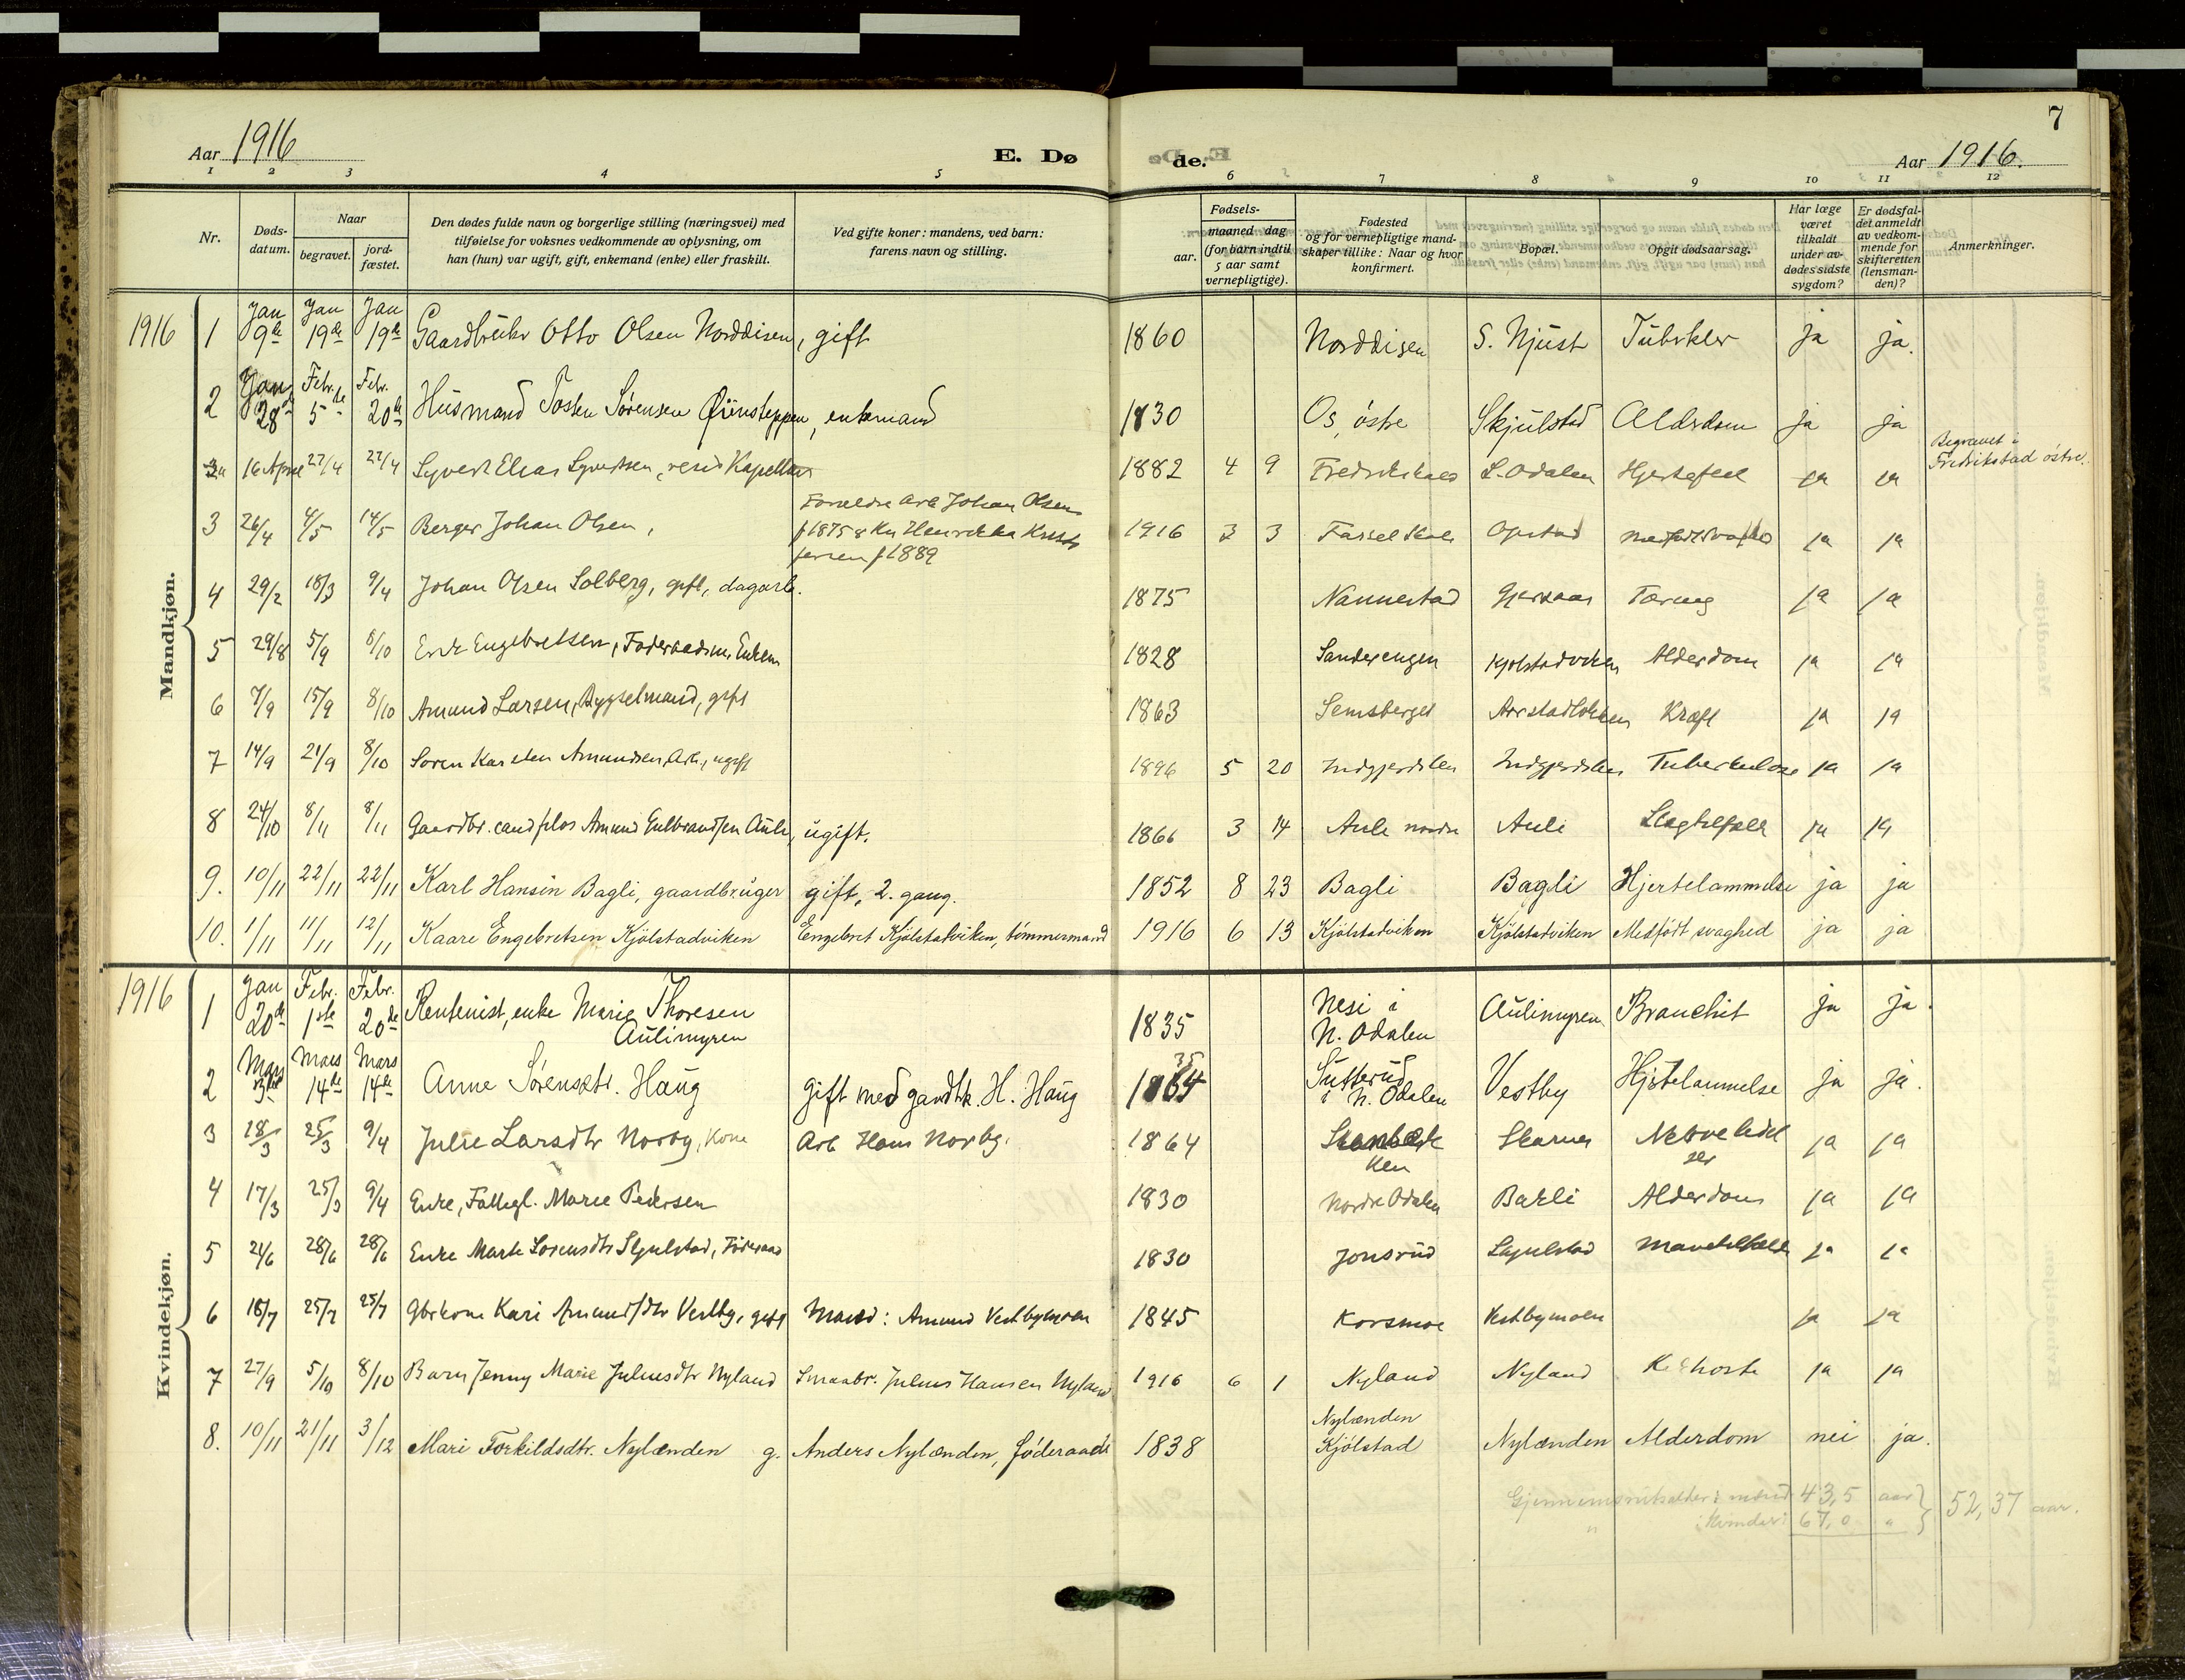 7
Aar 1916
E. Dø
de.
Aar 1916.
1 2 3 4 5 6 7 8 9 10 11 12
Nr.
Døds-
datum.
Naar
begravet.
jord-
fæstet.
Den dødes fulde navn og borgerlige stilling (næringsvei) med
tilføielse for voksnes vedkommende av oplysning, om
han (hun) var ugift, gift, enkemand (enke) eller fraskilt.
Ved gifte koner: mandens, ved barn:
farens navn og stilling.
Fødsels-
aar.
maaned dag
(for barn indtil
5 aar samt
vernepligtige).
Fødested
og for vernepligtige mand-
skaper tillike: Naar og hvor
konfirmert.
Bopæl.
Opgit dødsaarsag.
Har læge
været
tilkaldt
under av-
dødes sidste
sygdom?
Er dødsfal-
det anmeldt
av vedkom-
mende for
skifteretten
(lensman-
den)?
Anmerkninger.
Mandkjøn.
Jan Jan Jan
1916 1 9de 19de 19de Gaardbruker Otto Olsen Norddisen, gift 1860 Norddisen S. Njust Tubrkler ja ja.
Jan Febr. Febr.
2 28de 5te 20de Husmand Tosten Sørensen enkemand 1830 Os, østre Skjulstad Alderdom ja ja
16 April 27/4 27/4 Syvert Elias Syvertsen, resid Kapellan 1882 4 9 S. Odalen Hjertefeil ja ja
Begravet i
Fredrikstad østre.
3 26/4 4/5 14/5 Berger Johan Olsen, 1916 3 3 Opstad ja ja
Forældre Arb Johan Olsen
f 1875 & Ku Henrikka Krist
fersen f 1889
4 29/2 18/3 9/4 Johan Olsen Solberg, gift, dagarb. 1875 Nannestad Tæring ja ja
5 29/8 5/9 8/10 Erik Engebretsen, Føderaadsm, Enkem 1828 Sanderengen Kjølstadviken Alderdom ja ja
6 7/9 15/9 8/10 Amund Larsen, Bygselmand, gift 1863 Semsberget Kræft ja ja
7 14/9 21/9 8/10 Soren Karsten Amundsen, Arb, ugift 1896 5 20 Indgjerdslen Indgjerdslen Tuberkulose ja ja
8 24/10 8/11 8/11 Gaardbr. cand filos Amund Gulbrandsen Auli, ugift. 1866 3 14 Auli nordre Auli Slagtilfælde ja ja
9. 10/11 22/11 22/11 Karl Hansin Bagli, gaardbruger gift, 2. gang. 1852 8 23 Bagli Bagli Hjertelammelse ja ja
10. 1/11 11/11 12/11 Kaare Engebretsen Kjølstadviken Engebret Kjølstadviken, tømmermand 1916 6 13 Kjølstadviken Kjølstadviken Medfødt svaghed ja ja
Kvindekjøn.
Jan Febr. Febr.
1916 1 20de 1ste 20de Rentenist, enke Marie Thoresen 1835 Nesi i Aulimyren Bronchit ja ja.
Aulimyren N. Odalen
Mars Mars Mars
2 3de 14de 14de Anne Sørensdtr. Haug Gift med gaardbr. H. Haug 1864 35 Sutterud Vestby Hjertelammelse ja ja.
i N. Odalen
3 18/3 25/3 9/4 Julie Larsdtr Norby, Kone Arb Hans Norby. 1864 Skarnes ja ja
ken
4 17/3 25/3 9/4 Enke, Fattigl. Marie Pedersen 1830 Nordre Odalen Bakli Alderdom ja ja
5 24/6 28/6 28/6 Enke Marte Sorensdtr Skjulstad, Føderaad 1830 Jonsrud Skjulstad ja ja
6 18/7 25/7 25/7 Gbrkone Kari Amundsdtr Vestby, gift Mand: Amund Vestbymoen 1845 Korsmoe Vestbymoen ja ja
7 27/9 5/10 8/10 Barn Jenny Marie Juliusdtr Nyland Smaabr. Julius Hansen Nyland 1916 6 1 Nyland Nyland Kikhoste ja ja
Nylænden
8. 10/11 21/11 3/12 Mari Torkildsdtr. Nylænden g. Anders Nylænden, føderaads 1838 Kjølstad Nylænden Alderdom nei ja.
Gjennemsnitsalder: mænd 43,5 aar } 52,37 aar.
" : kvinder: 67,0 "